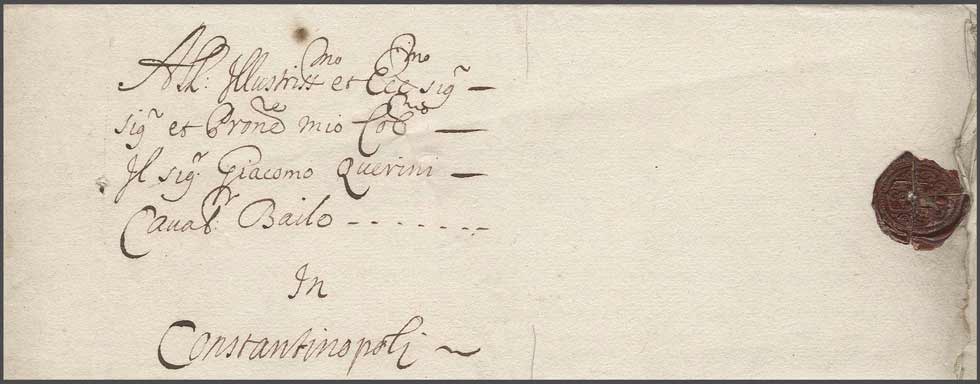 All: Illustriss.mo et Ecc.mo sig.r
sig.r et Prone mio Col.mo
Il sig.r Giacomo Querini
Caual.r Bailo
In
Constantinopoli